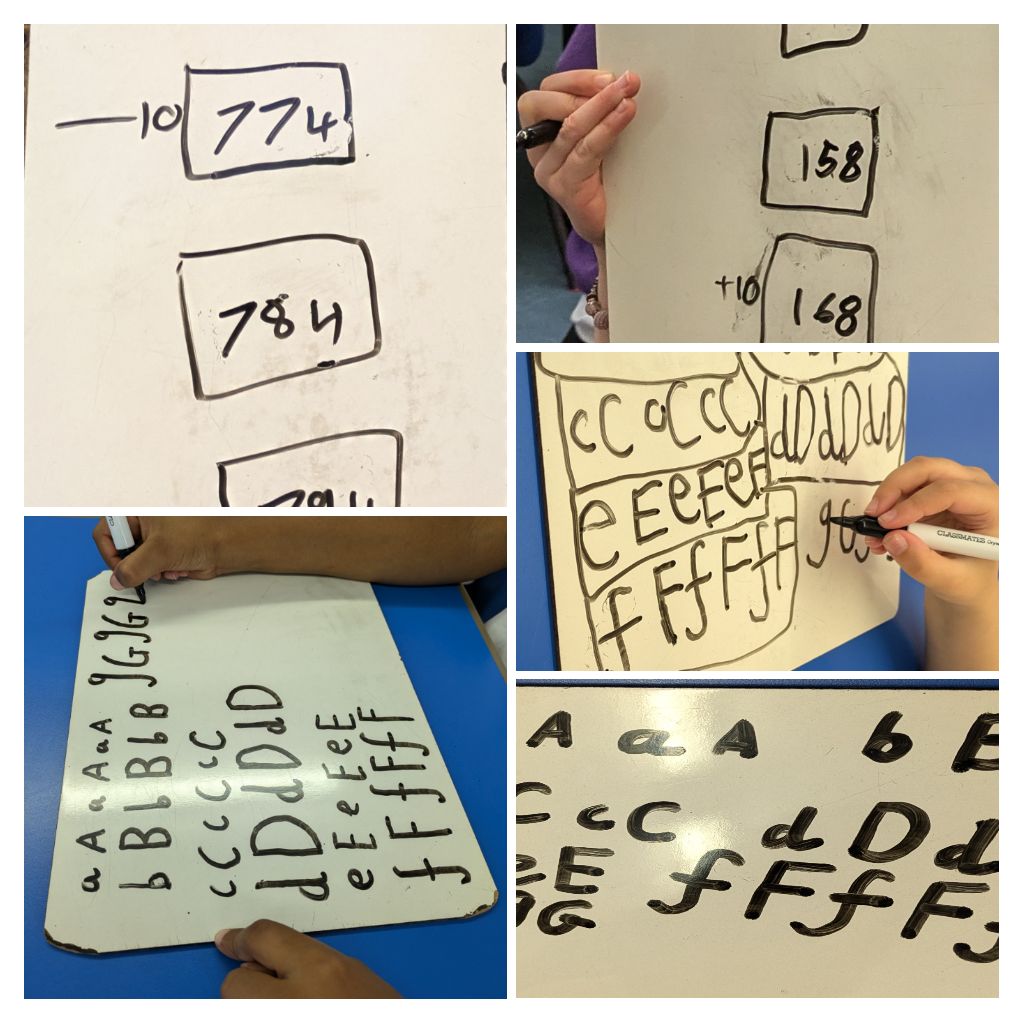 —10 774
784
158
+10 168
cC cC cC
dD dD dD
e E e E e E
f F f F f F
CLASSMATES
a A a A a A
b B b B b B
c C c C c C
d D d D d D
e E e E e E
f F f F f F
g G g G
A a A b
C c C d D d
E f F f F
G